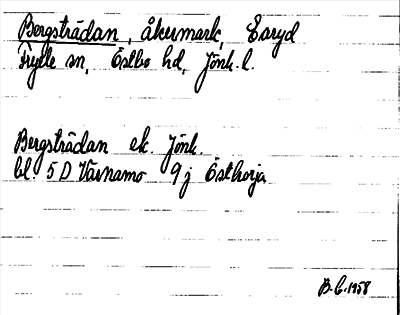 Bergsträdan, åkermark, Earyd
Frylle sn, Östbo hd, Jönk. l.
Bergsträdan ek. Jönk.
bl. 5 D Värnamo 9 j Östhorja
B. C. 1958